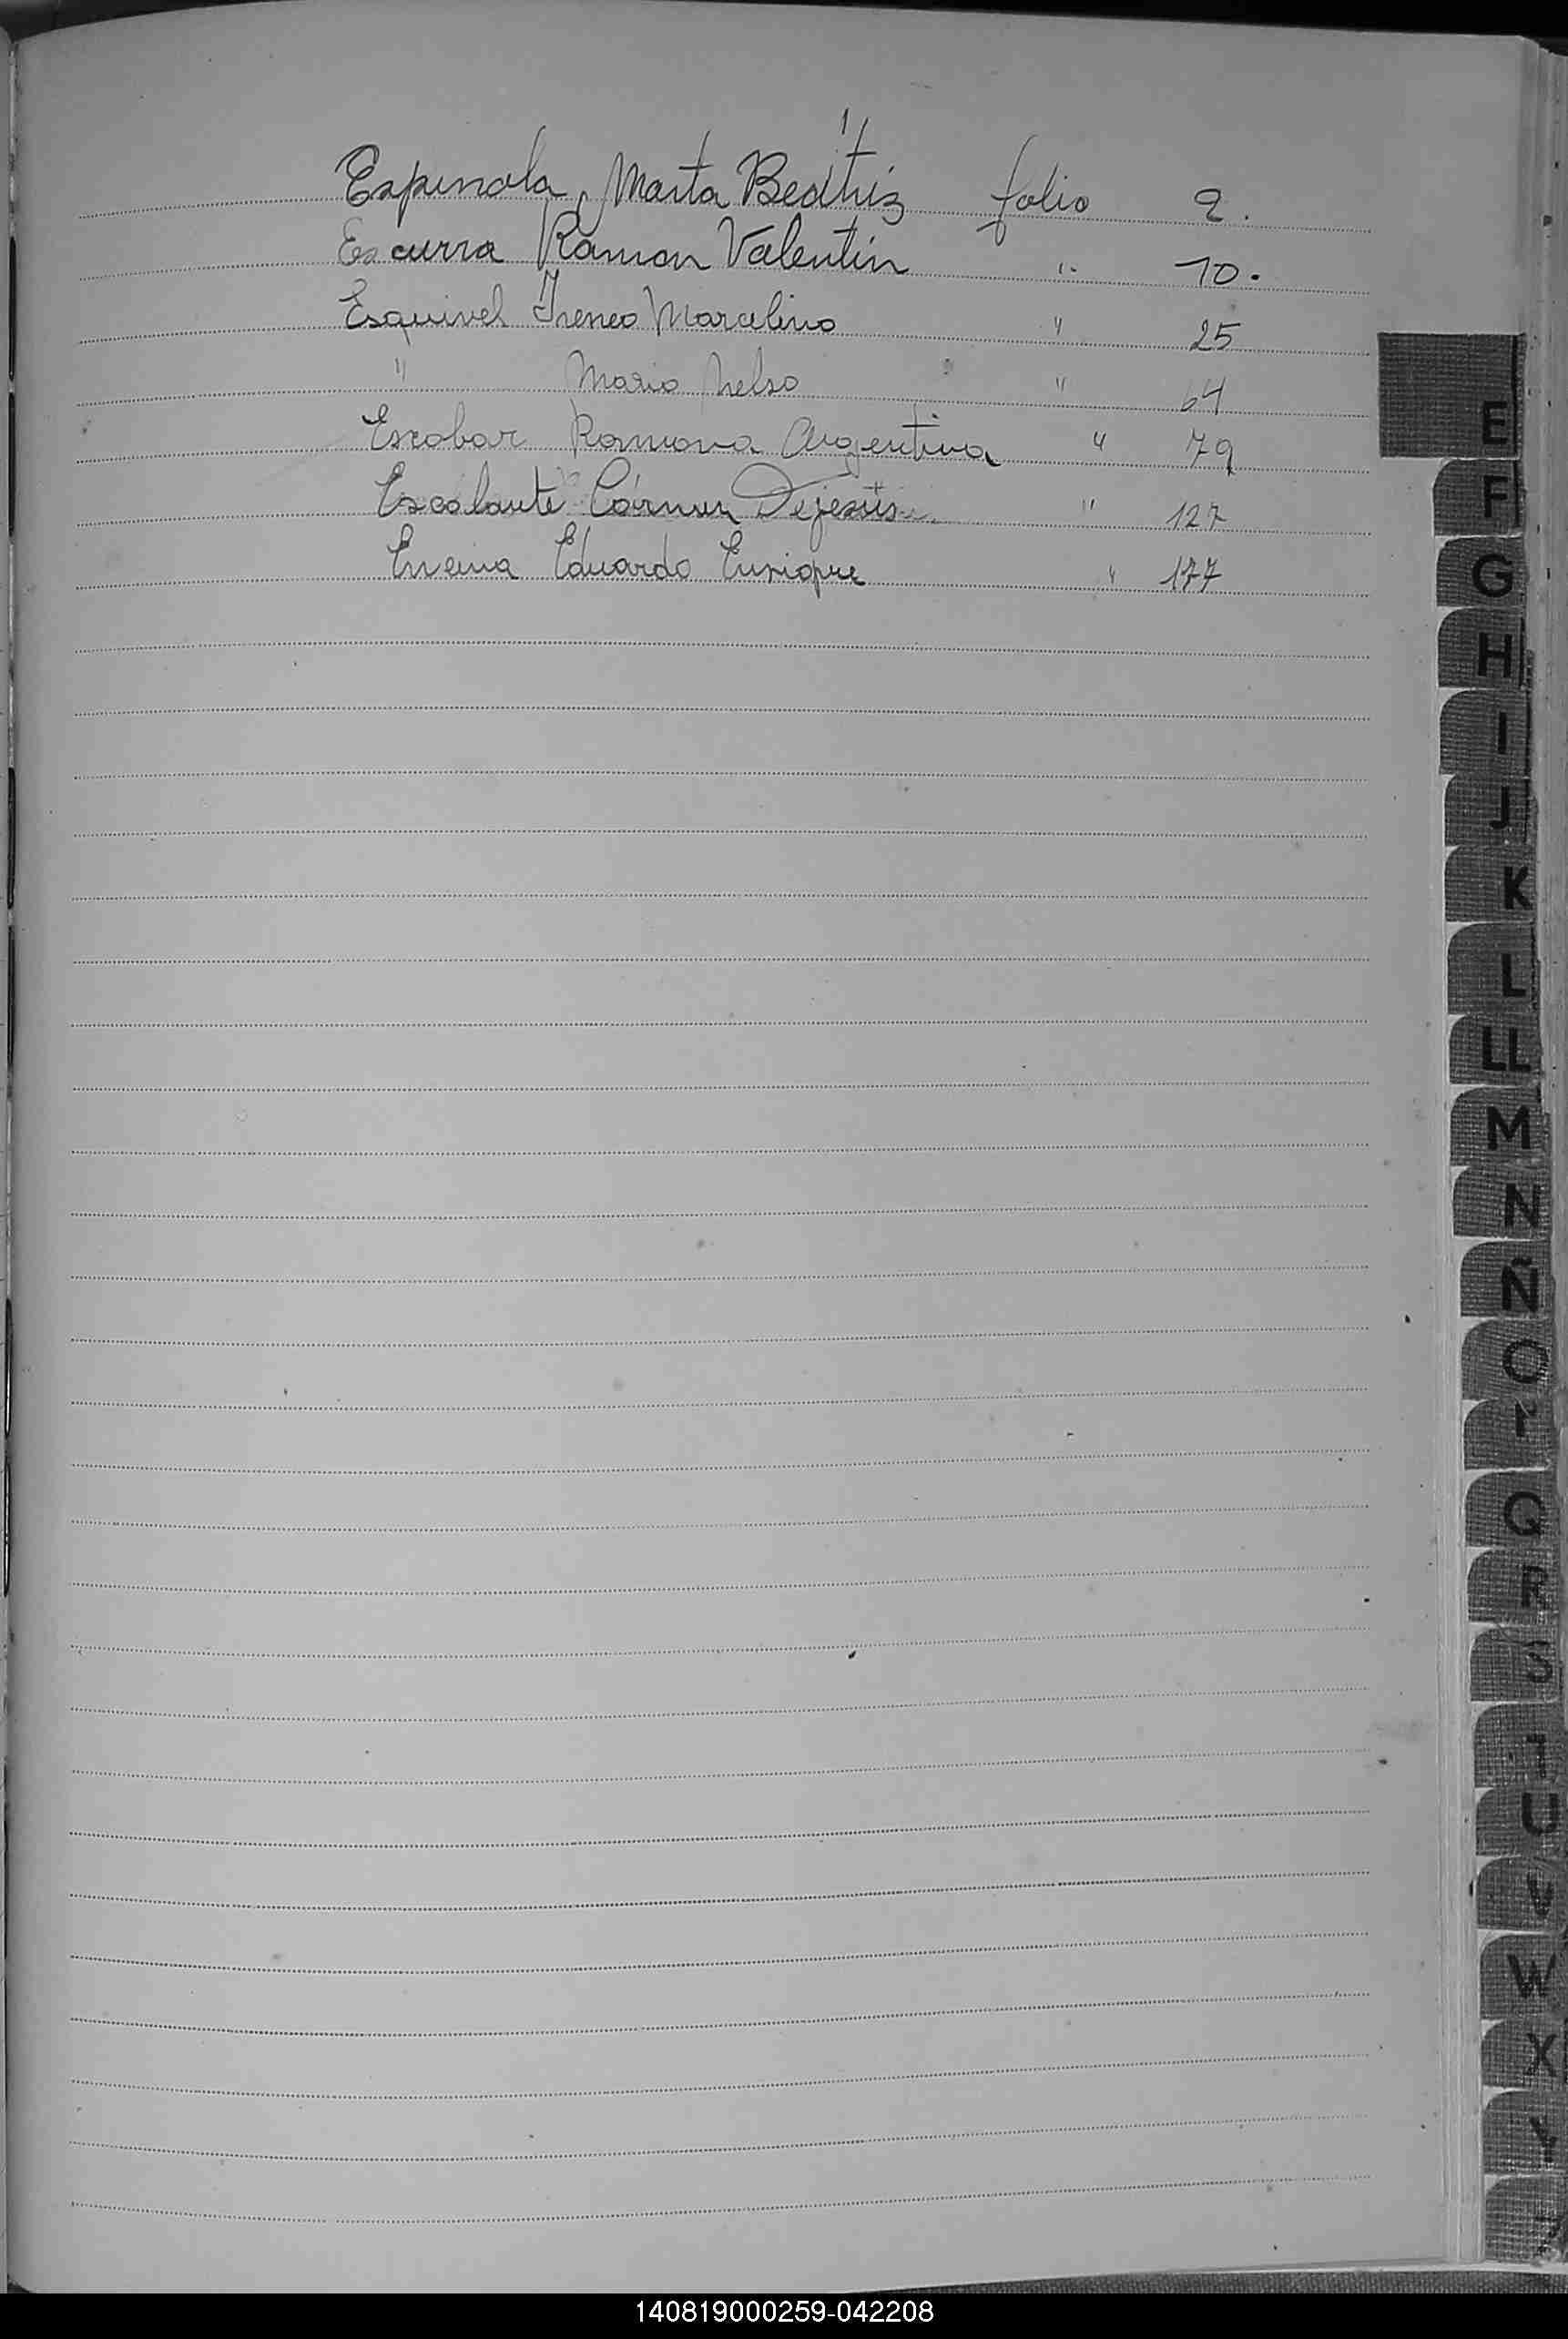 Espinola, Marta Beatriz folio 2.
Escurra Ramon Valentin " 10.
Esquivel Ireneo Marcelino " 25
" Mario Nelso " 64
Escobar Ramona Argentina " 79
Escalante Cármen Dejesús " 127
Eduardo Enrique " 177
E
F
G
H
I
J
K
L
LL
M
N
Ñ
O
Q
R
S
T
U
V
W
X
Y
140819000259-042208